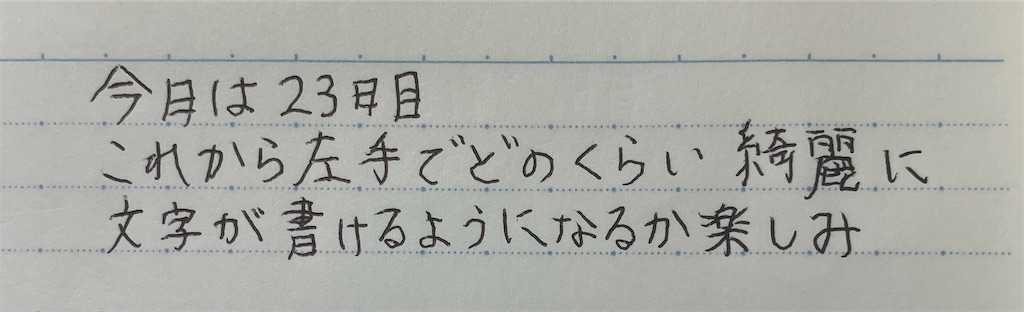 今日は23日目
これから左手でどのくらい綺麗に
文字が書けるようになるか楽しみ